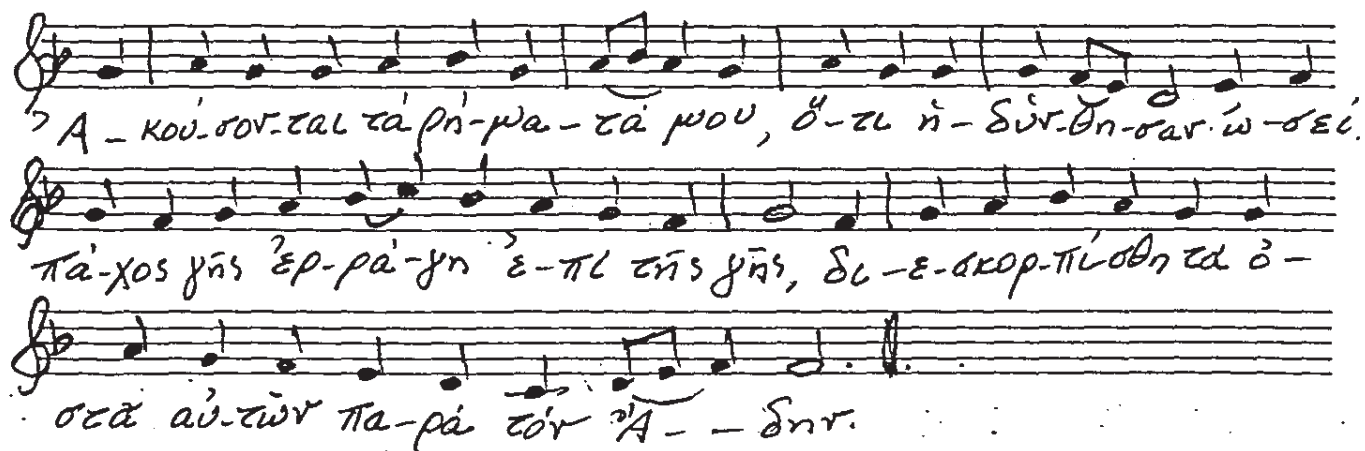 Ἀ-κού-σον-ται τά ρή-μα-τά μου, ὅ-τι ἡ-δύν-θη-σαν. ὡ-σεί.
πά-χος γῆς ἐρ-ρά-γη ἐ-πί τῆς γῆς, δι-ε-σκορ-πίσθη τά ὀ-
στᾶ αὐ-τῶν πα-ρά τόν ᾍ--δην.